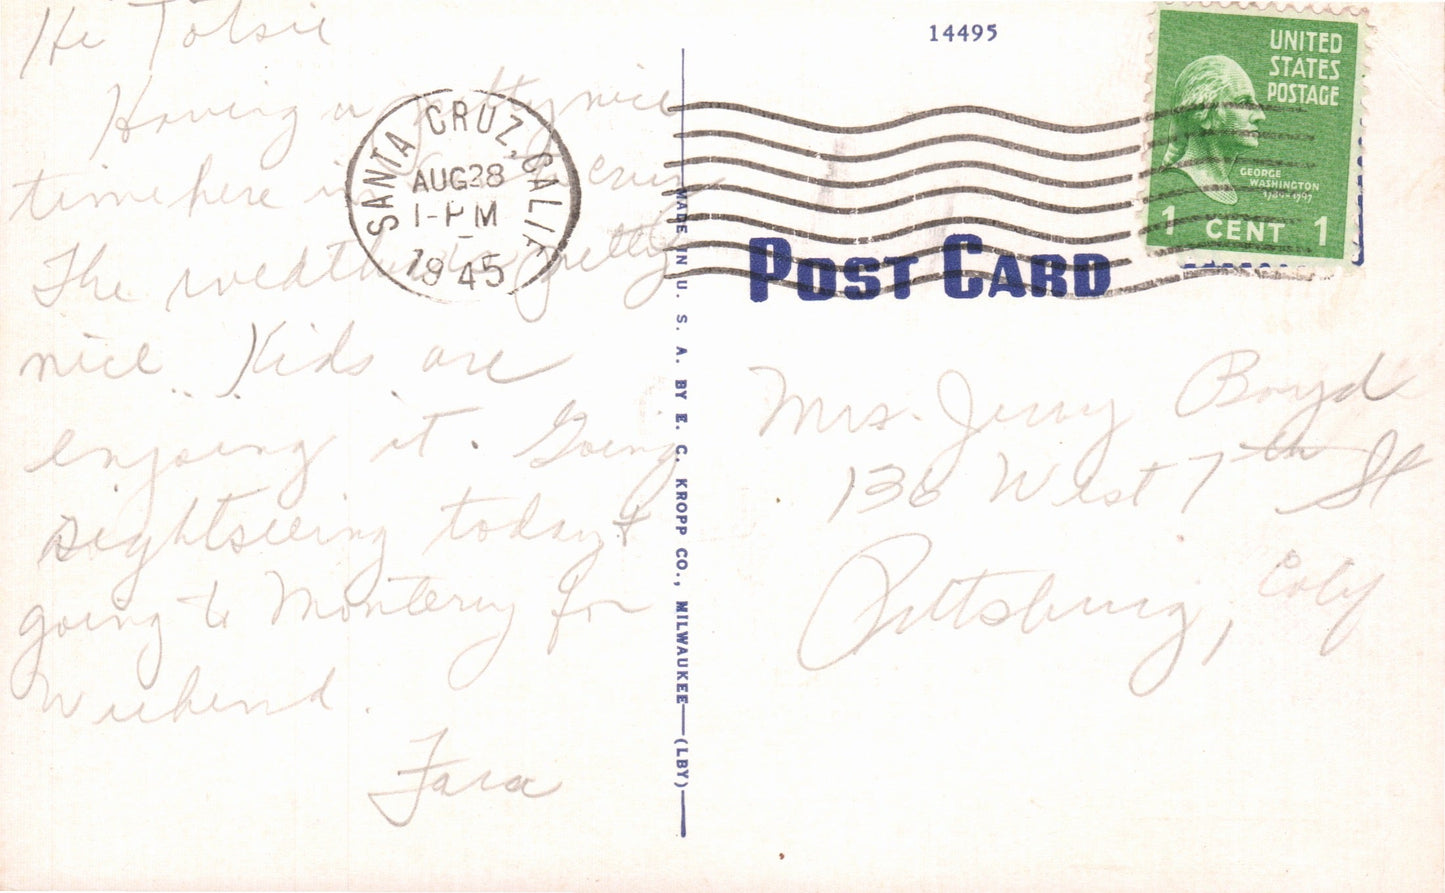 Hi Totsie
Having a pretty nice
time here in Santa Cruz
The weather is pretty
nice. Kids are
enjoing it. Going
sightseeing today &
going to Monterey for
Weekend.
Fara
14495
SANTA CRUZ, CALIF.
AUG 28
1-PM
1945
UNITED
STATES
POSTAGE
GEORGE
WASHINGTON
1789-1797
1 CENT 1
POST CARD
MADE IN U. S. A. BY E. C. KROPP CO., MILWAUKEE—(LBY)—
Mrs. Jerry Boyd
138 West 7th St
Pittsburg, Calif